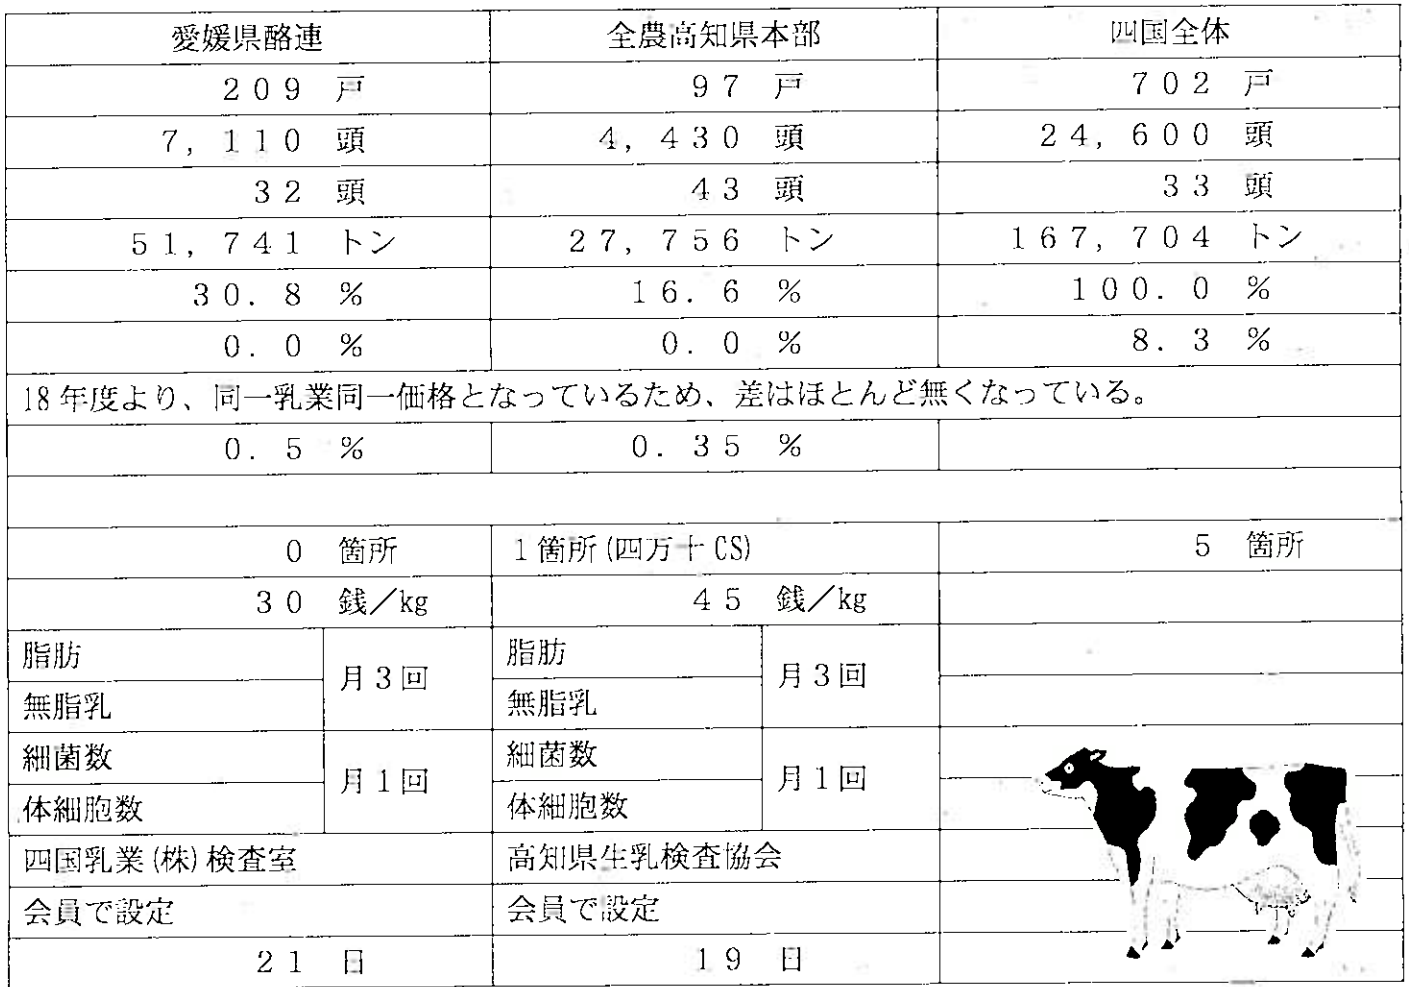 愛媛県酪連 全農高知県本部 四国全体
209 戸 97 戸 702 戸
7,110 頭 4,430 頭 24,600 頭
32 頭 43 頭 33 頭
51,741 トン 27,756 トン 167,704 トン
30.8 % 16.6 % 100.0 %
0.0 % 0.0 % 8.3 %
18年度より、同一乳業同一価格となっているため、差はほとんど無くなっている。
0.5 % 0.35 %
0 箇所 1箇所(四万十CS) 5 箇所
30 銭／kg 45 銭／kg
脂肪 月3回 脂肪 月3回
無脂乳 無脂乳
細菌数 月1回 細菌数 月1回
体細胞数 体細胞数
四国乳業(株)検査室 高知県生乳検査協会
会員で設定 会員で設定
21 日 19 日